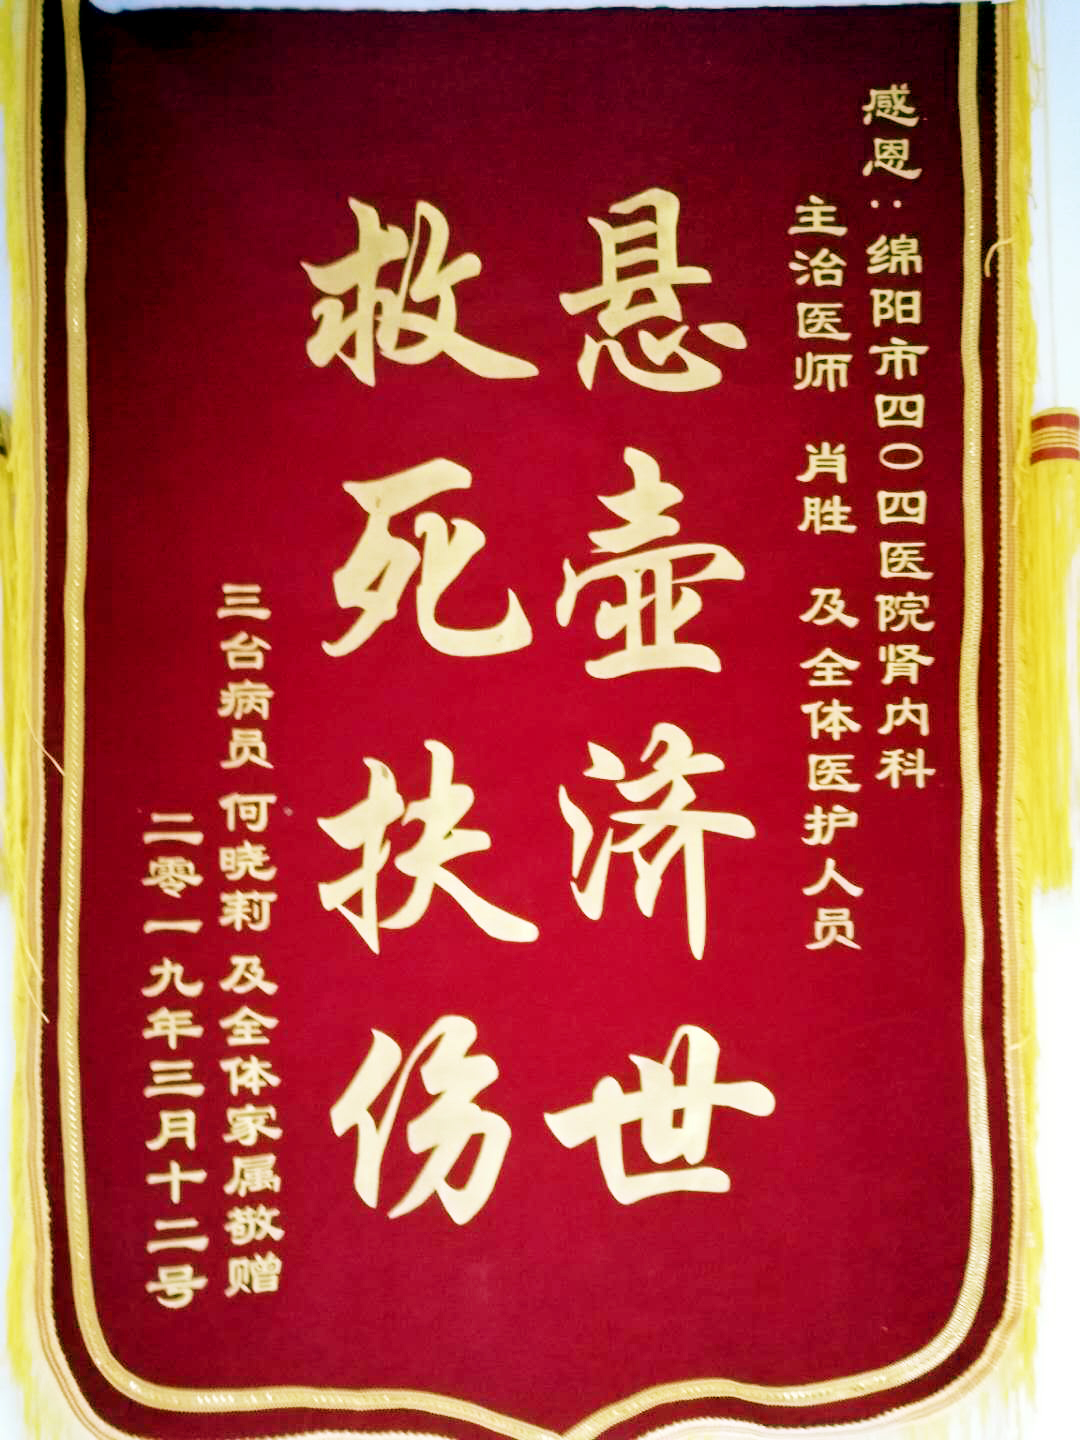 感恩：绵阳市四〇四医院肾内科
主治医师 肖胜 及全体医护人员
悬壶济世
救死扶伤
三台病员何晓莉及全体家属敬赠
二零一九年三月十二号